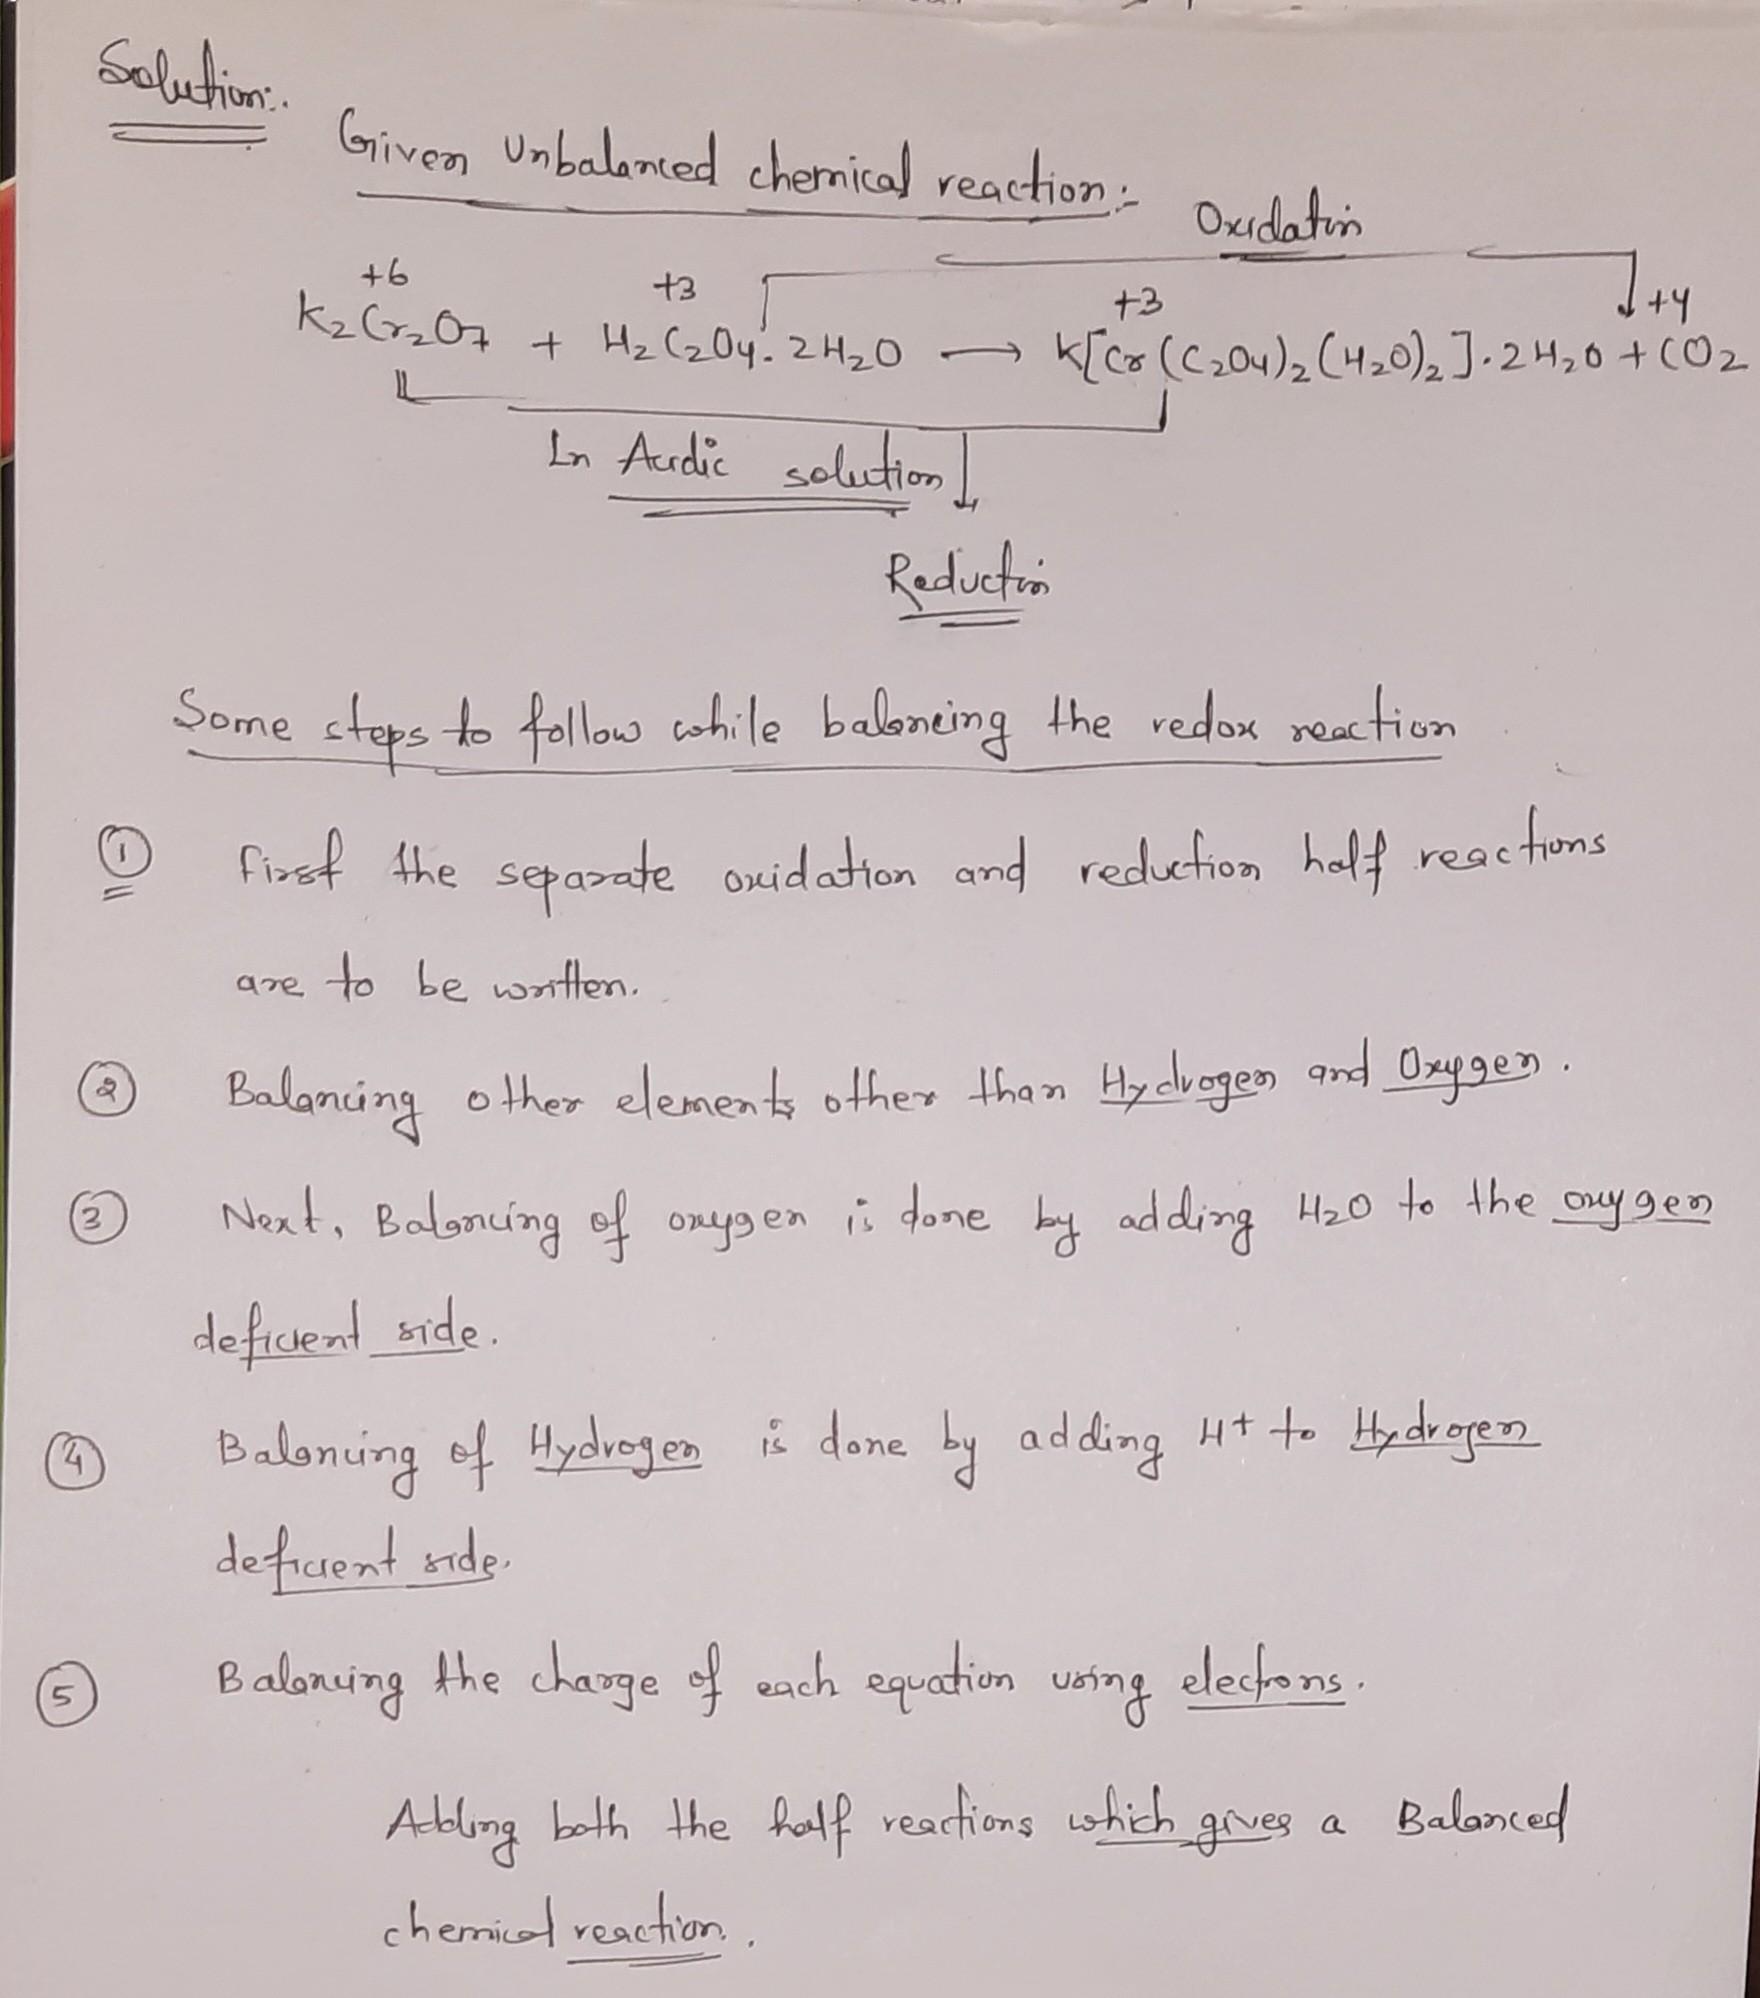 Solution:.
Given Unbalanced chemical reaction:-
Oxidation
+6 +3 +3 +4
K2Cr2O7 + H2C2O4.2H2O → K[Cr(C2O4)2(H2O)2].2H2O + CO2
In Acidic solution
Reduction
Some steps to follow while balancing the redox reaction
① First the separate oxidation and reduction half reactions
are to be written.
② Balancing other elements other than Hydrogen and Oxygen.
③ Next, Balancing of oxygen is done by adding H2O to the oxygen
deficient side.
④ Balancing of Hydrogen is done by adding H+ to Hydrogen
deficient side.
⑤ Balancing the charge of each equation using electrons.
Adding both the half reactions which gives a Balanced
chemical reaction.